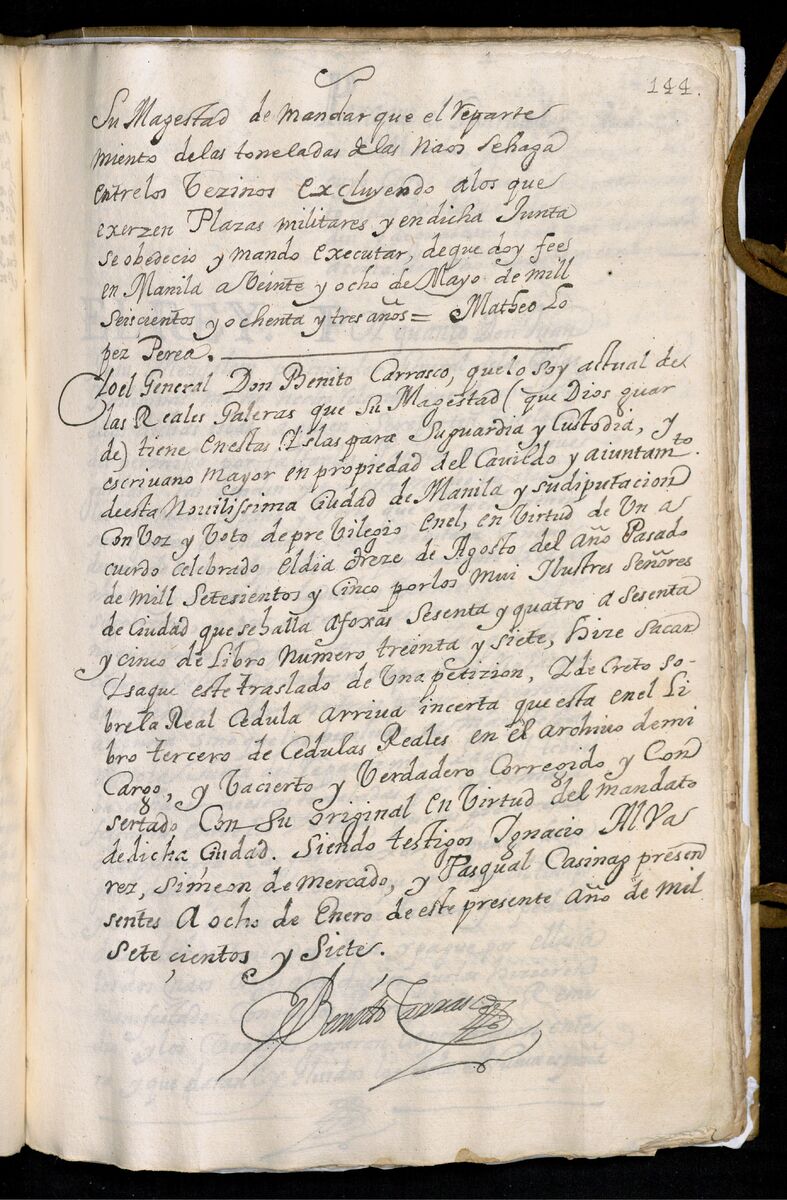 144.
Su Magestad de mandar que el reparte
miento delas toneladas delas Naos sehaga
entrelos Vezinos excluyendo alos que
exerzen Plazas militares y endicha Junta
se obedecio y mando executar, deque doy fee
en Manila a Veinte y ocho de Mayo de mill
Seiscientos y ochenta y tres años = Matheo Lo
pez Perea.
Yo el General Don Benito Carrasco, quelo soy actual de
las Reales Galeras que Su Magestad (que Dios guar
de) tiene enestas Yslas para Suguardia y Custodia, y
escrivano Mayor en propiedad del Cavildo y aiuntamto.
deesta Novilissima Ciudad de Manila y sudiputacion
Con Voz y Voto de preVilegio enel, en Virtud de Un a
cuerdo celebrado Eldia treze de Agosto del Año Pasado
de mill Setesientos y Cinco porlos Mui Ilustres Señores
de Ciudad que sehalla afoxas Sesenta y quatro a Sesenta
y cinco de Libro Numero treinta y siete, hize sacar
Ysaque este traslado de Una petizion, Y decreto so-
brela Real Cedula arriva incerta que esta enel Li
bro tercero de Cedulas Reales en el archivo demi
Cargo, y Vacierto y Verdadero Corregido y Con
sertado Con Su original en Virtud del mandato
dedicha Ciudad. Siendo testigos Ygnacio Alva
rez, Simeon de Mercado, y Pasqual Casinag presen
sentes A ocho de Enero de este presente Año de mil
Setecientos y Siete.
Benito Carrasco